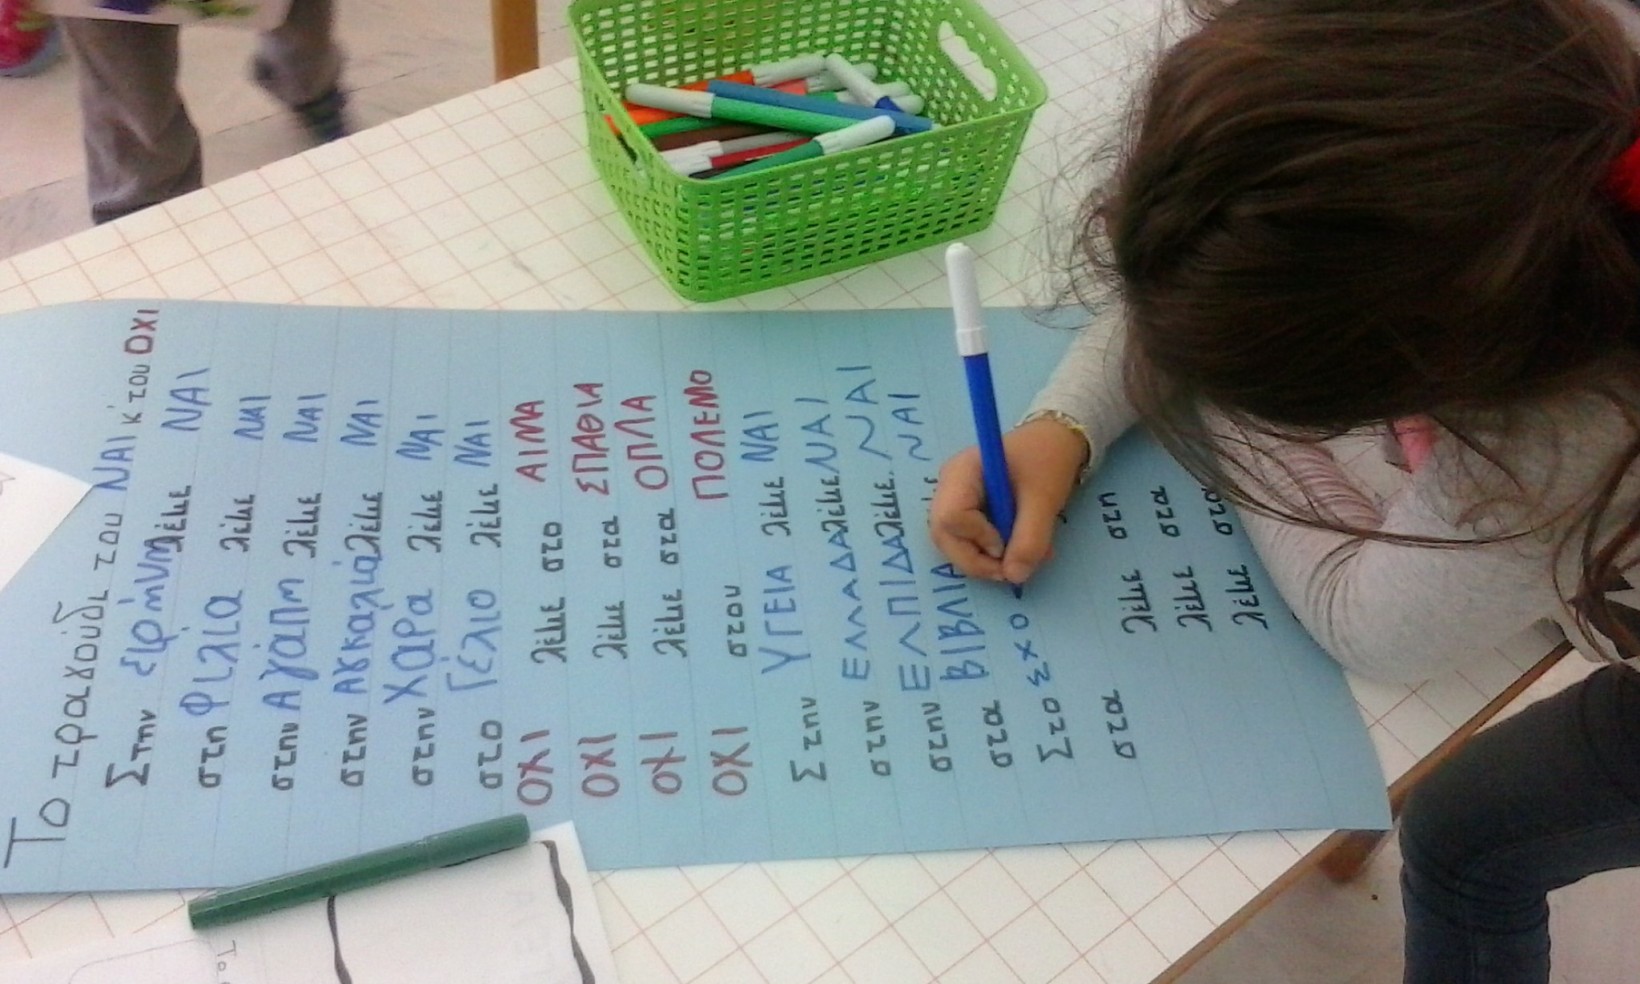 Το τραγούδι του ΝΑΙ κ' του ΟΧΙ
Στην ειρήνη λέμε ΝΑΙ
στη Φιλία λέμε ΝΑΙ
στην Αγάπη λέμε ΝΑΙ
στην Αγκαλιά λέμε ΝΑΙ
στην Χαρα λέμε ΝΑΙ
στο Γέλιο λέμε ΝΑΙ
ΟΧΙ λέμε στο ΑΙΜΑ
ΟΧΙ λέμε στα ΣΠΑΘΙΑ
ΟΧΙ λέμε στα ΟΠΛΑ
ΟΧΙ στου ΠΟΛΕΜΟ
Στην ΥΓΕΙΑ λέμε ΝΑΙ
στην ΕΛΛΑΔΑ λέμε ΝΑΙ
στην ΕΛΠΙΔΑ λέμε ΝΑΙ
στα ΒΙΒΛΙΑ ΝΑΙ
Στο ΣΧΟ
στα λέμε στη
λέμε στα
λέμε στα